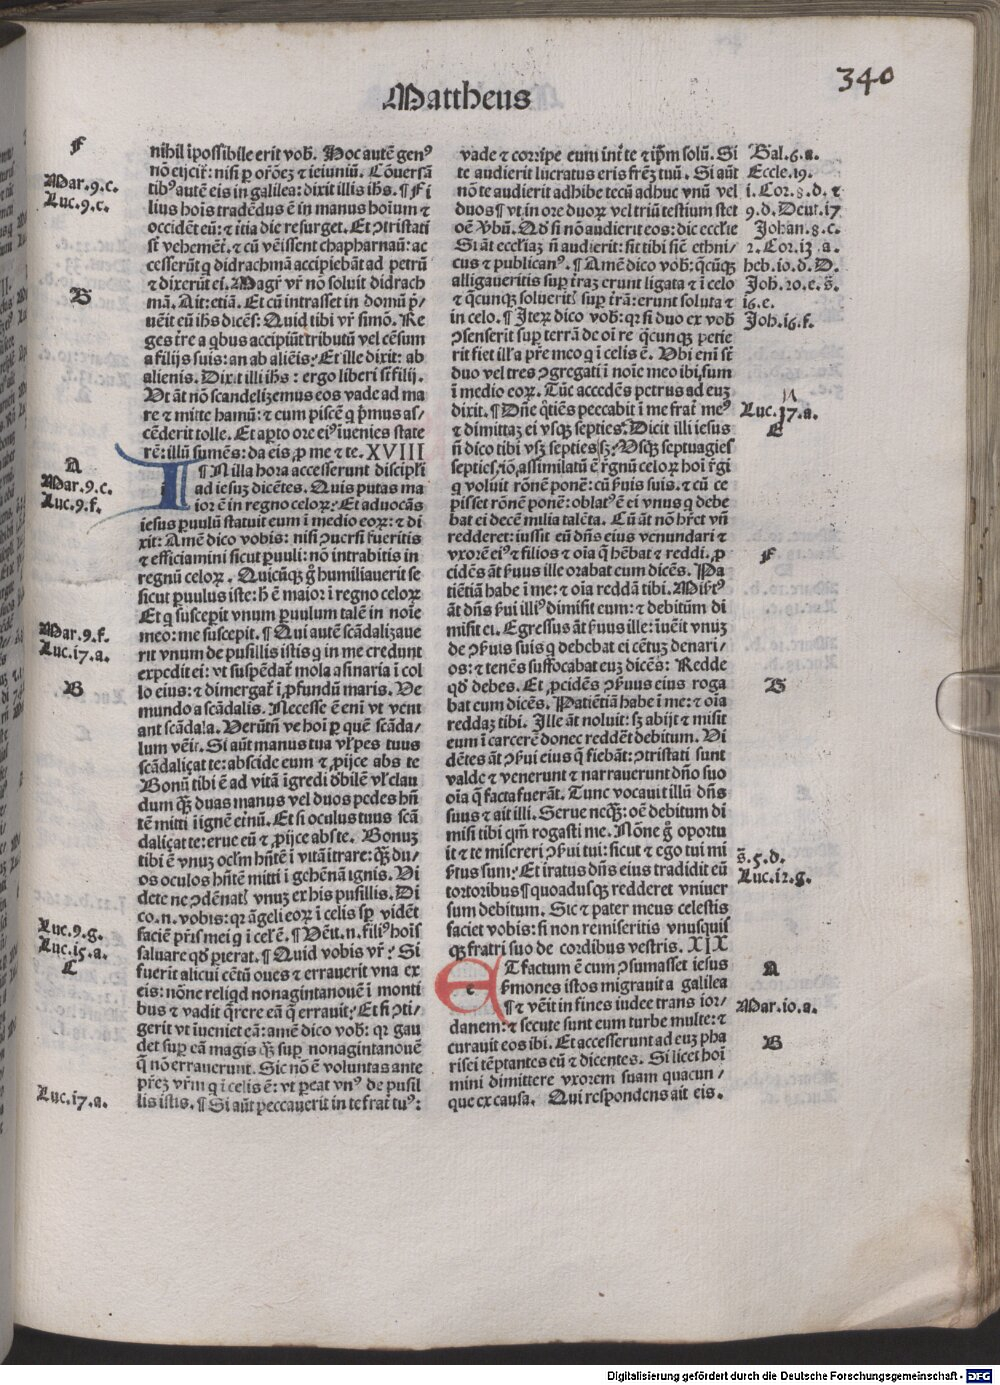 340
Mattheus
F
Mar.9.c.
Luc.9.c.
B
A
Mar.9.c.
Luc.9.f.
Mar.9.f.
Luc.i7.a.
B
Luc.9.g.
Luc.i5.a.
C
Luc.i7.a.
nihil īpossibile erit vob̄. Hoc autē genꝰ
nō eijcit᷑: nisi ꝑ orōeꝫ ⁊ ieiuniū. Cōuersā
tibꝰ autē eis in galilea: dixit illis ihs̄. ¶ Fi
lius hoīs tradēdus ē in manus hoīum ⁊
occidēt eū: ⁊ t̄tia die resurget. Et ꝯtristati
st̄ vehemēt̄. ⁊ cū vēissent chapharnaū: ac
cesserūt q̄ didrachmā accipiebāt ad petrū
⁊ dixerūt ei. Magr̄ vr̄ nō soluit didrach
mā. Ait: etiā. Et cū intrasset in domū p̄/
uēit eū ihs̄ dicēs: Quid tibi vr̄ simō. Re
ges tr̄e a qbus accipiūt tributū vel cēsum
a filijs suis: an ab aliēis? Et ille dixit: ab
alienis. Dixit illi ihs̄: ergo liberi st̄ filij.
Vt āt nō scandelizemus eos vade ad ma
re ⁊ mitte hamū: ⁊ eum piscē q̄ p̄mus as/
cēderit tolle. Et apto ore eiꝰ īuenies state
rē: illū sumēs: da eis ꝓ me ⁊ te. XVIII
I ¶ N illa hora accesserunt discipl̄i
ad iesuꝫ dicētes. Quis putas ma
ior ē in regno celoꝝ? Et aduocās
iesus ꝑuulū statuit eum ī medio eoꝝ: ⁊ di
xit: Amē dico vobis: nisi ꝯuersi fueritis
⁊ efficiamini sicut ꝑuuli: nō intrabitis in
regnū celoꝝ. Quicūqꝫ g̊ humiliauerit se
sicut ꝑuulus iste: h̄ ē maior ī regno celoꝝ
Et q̄ susceꝑit vnum ꝑuulum talē in noīe
meo: me suscepit. ¶ Qui autē scādalizaue
rit vnum de pusillis istis q̄ in me credunt
expedit ei: vt suspēdat᷑ mola asinaria ī col
lo eius: ⁊ dimergat᷑ ī ꝓfundū maris. Ve
mundo a scādalis. Necesse ē enī vt veni
ant scādala. Verūtn̄ ve hoī ꝑ quē scāda/
lum vēit. Si aūt manus tua vl̄ pes tuus
scādaliçat te: abscide eum ⁊ ꝓijce abs te
Bonū tibi ē ad vitā īgredi d̄bilē vl̄ clau
dum qꝫ̄ duas manus vel duos pedes hn̄
tē mitti ī ignē eīnū. Et si oculus tuus scā
daliçat te: erue eū ⁊ ꝓijce abs te. Bonuꝫ
tibi ē vnuꝫ ocl̄m hn̄tē ī vitā ītrare: qꝫ̄ du/
os oculos hn̄tē mitti ī gehēnā ignis. Vi
dete ne ꝯdēnat᷑ vnuꝫ ex his pusillis. Di
co.n. vobis: qꝛ āgeli eoꝝ ī celis sꝑ vidēt
faciē pr̄is mei q̄ ī cel̄ ē. ¶ Vēit.n. filiꝰ hoīs
saluare qd̄ perierat. ¶ Quid vobis vr̄? Si
fuerit alicui cētū oues ⁊ errauerit vna ex
eis: nōne reliqd nonagintanouē ī monti
bus ⁊ vadit q̄rere eā q̄ errauit? Et si ꝯti/
gerit vt īueniet eā: amē dico vob̄: qꝛ gau
det suꝑ eā magis qꝫ̄ suꝑ nonagintanouē
q̄ nō errauerunt. Sic nō ē voluntas ante
pr̄eꝫ vr̄m q̄ ī celis ē: vt ꝑeat vnꝰ de pusil
lis istis. ¶ Si aūt peccauerit in te frat᷑ tuꝰ:
vade ⁊ corripe eum int̄ te ⁊ ip̄m solū. Si
te audierit lucratus eris fr̄eꝫ tuū. Si aūt
nō te audierit adhibe tecū adhuc vnū vel
duos ¶ vt in ore duoꝝ vel triū testium stet
oē v̄bū. Qd̄ si nō audierit eos: dic eccl̄ie
Si āt eccl̄iaꝫ n̄ audierit: sit tibi sic̄ ethni/
cus ⁊ publicanꝰ. ¶ Amē dico vob̄: q̄cūqꝫ
alligaueritis suꝑ tr̄aꝫ erunt ligata ⁊ ī celo
⁊ q̄cunqꝫ solueritꝭ suꝑ tr̄ā: erunt soluta ⁊
in celo. ¶ Iteꝝ dico vob̄: qꝛ si duo ex vob̄
ꝯsenserit suꝑ terrā de oī re q̄cunqꝫ petie
rit fiet ill̄a pr̄e meo q̄ ī celis ē. Vbi enī st̄
duo vel tres ꝯgregati ī noīe meo ibi, sum
ī medio eoꝝ. Tūc accedēs petrus ad euꝫ
dixit. ¶ Dn̄e q̄tiēs peccabit ī me frat᷑ meꝰ
⁊ dimittaꝫ ei vsqꝫ septies? Dicit illi iesus
n̄ dico tibi vsqꝫ septies: sꝫ vsqꝫ septuagies
septies. iō assimilatū ē r̄gnū celoꝝ hoī r̄gi
q̄ voluit rōnē ponē: cū ẜuis suis. ⁊ cū ce
pisset rōnē ponē: oblatꝰ ē ei vnus q̄ debe
bat ei decē milia talēta. Cū āt nō hr̄et vn̄
redderet: iussit eū dn̄s eius venundari ⁊
vxorē eiꝰ ⁊ filios ⁊ oīa q̄ hēbat ⁊ reddi. ꝓ
cidēs āt ẜuus ille orabat eum dicēs. Pa
tiētiā habe ī me: ⁊ oīa reddā tibi. Misꝭtꝰ
āt dn̄s ẜui illiꝰ dimisit eum: ⁊ debitūm di
misit ei. Egressus āt ẜuus ille: īuēit vnuꝫ
de ꝯẜuis suis q̄ debebat ei cētuꝫ denari/
os: ⁊ tenēs suffocabat euꝫ dicēs: Redde
qd̄ debes. Et ꝓcidēs ꝯẜuus eius roga
bat eum dicēs. Patiētiā habe ī me: ⁊ oīa
reddaꝫ tibi. Ille āt noluit: sꝫ abijt ⁊ misit
eum ī carcerē donec reddēt debitum. Vi
dētes āt ꝯẜui eius q̄ fiebāt: ꝯtristati sunt
valde ⁊ venerunt ⁊ narrauerunt dn̄o suo
oīa q̄ facta fuerāt. Tunc vocauit illū dn̄s
suus ⁊ ait illi. Serue neqꝫ: oē debitum di
misi tibi qm̄ rogasti me. Nōne g̊ oportu
it ⁊ te misereri ꝯẜui tui: sicut ⁊ ego tui mi
ẜtus sum? Et iratus dn̄s eius tradidit eū
tortoribus ¶ quoadusqꝫ redderet vniuer
sum debitum. Sic ⁊ pater meus celestis
faciet vobis: si non remiseritis vnusquis
qꝫ fratri suo de cordibus vestris. XIX
e T factum ē cum ꝯsumasset iesus
ẜmones istos migrauit a galilea
¶ ⁊ vēit in fines iudee trans ior/
danem: ⁊ secute sunt eum turbe multe: ⁊
curauit eos ibi. Et accesserunt ad euꝫ pha
risei tēptantes eū ⁊ dicentes. Si licet hoī
mini dimittere vxorem suam quacun/
que ex causa. Qui respondens ait eis.
Gal.6.a.
Eccle.19.
i.Cor.8.d. ⁊
9.d. Deut.i7
Johan.8.c.
2.Cor.i3.a.
heb.io.d. D.
Joh.20.e.s̄.
i6.e.
Joh.i6.f.
Luc.17.a.
E
F
B
s̄.5.d.
Luc.i2.g.
A
Mar.io.a.
B
Digitalisierung gefördert durch die Deutsche Forschungsgemeinschaft - DFG